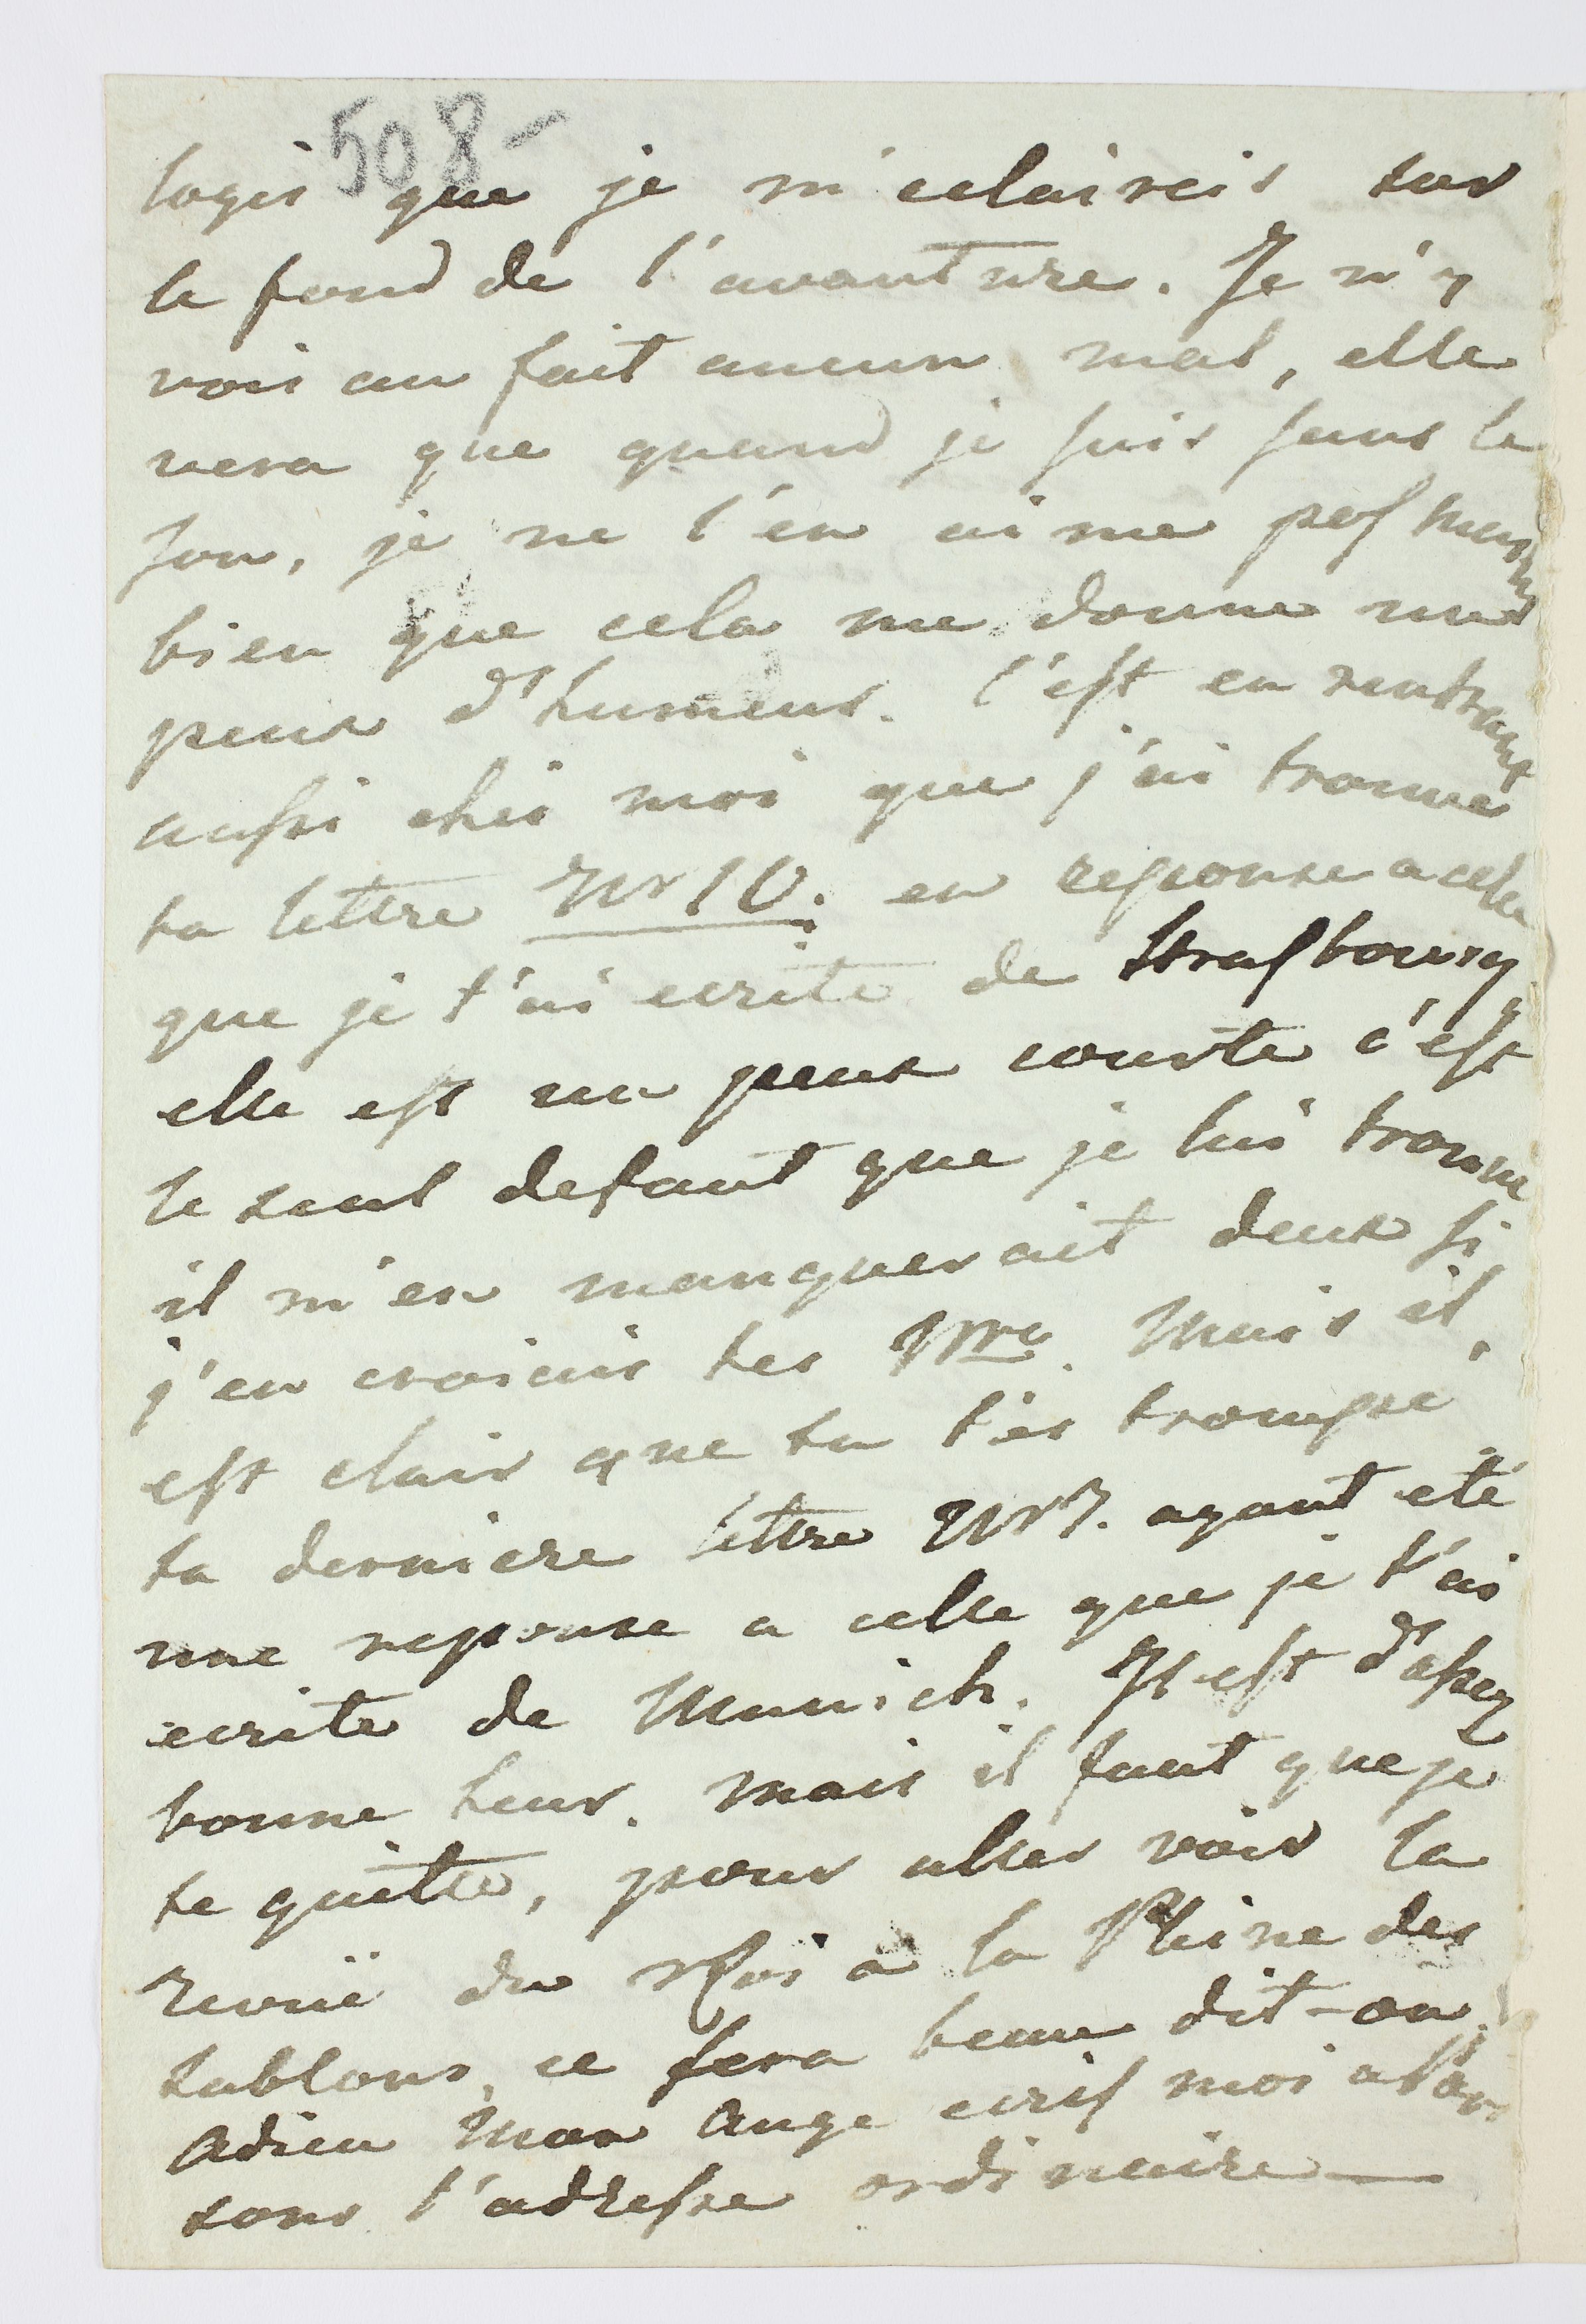 508-
logis que je m'eclaircis sur
le fond de l'avanture. Je n'y
vois au fait aucun mal, elle
vera que quand je suis sans le
sou, je ne l'en aime pas moins
bien que cela me donne un
peux d'humeur. C'est en rentrant
aussi chés moi que j'ai trouvé
ta lettre Nr 10. en reponse a celle
que je t'ai ecrite de Strasbourg,
elle est un peux courte c'est
le seul defaut que je lui trouve
il m'en manquerait deux si
j'en croiais tes Nro. Mais il
est clair que tu t'és trompé
ta derniere lettre Nr 7. ayant eté
une reponse a celle que je t'ai
ecrite de Munich. Il est d'assez
bonne heur. mais il faut que je
te quitte, pour aller voir la
revuë du Roi a la Pleine des
sablons, ce sera beau dit-on.
Adieu Mon Ange ecris moi
sous l'adresse ordinaire—